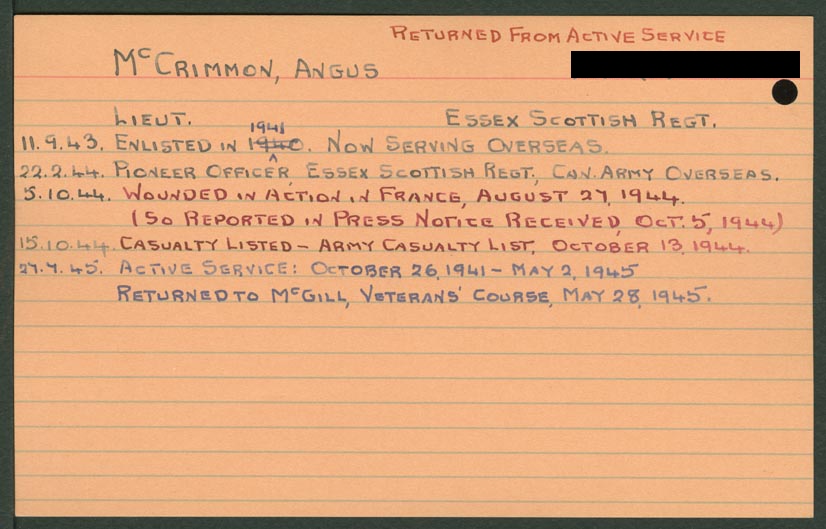 RETURNED FROM ACTIVE SERVICE
McCRIMMON, ANGUS
LIEUT. ESSEX SCOTTISH REGT.
1941
11.9.43. ENLISTED IN 1940. NOW SERVING OVERSEAS.
22.2.44. PIONEER OFFICER, ESSEX SCOTTISH REGT., CAN. ARMY OVERSEAS.
5.10.44. WOUNDED IN ACTION IN FRANCE, AUGUST 27, 1944.
(SO REPORTED IN PRESS NOTICE RECEIVED, OCT. 5, 1944)
15.10.44. CASUALTY LISTED - ARMY CASUALTY LIST, OCTOBER 13, 1944.
27.7.45. ACTIVE SERVICE: OCTOBER 26, 1941 - MAY 2, 1945
RETURNED TO McGILL, VETERANS' COURSE, MAY 28, 1945.